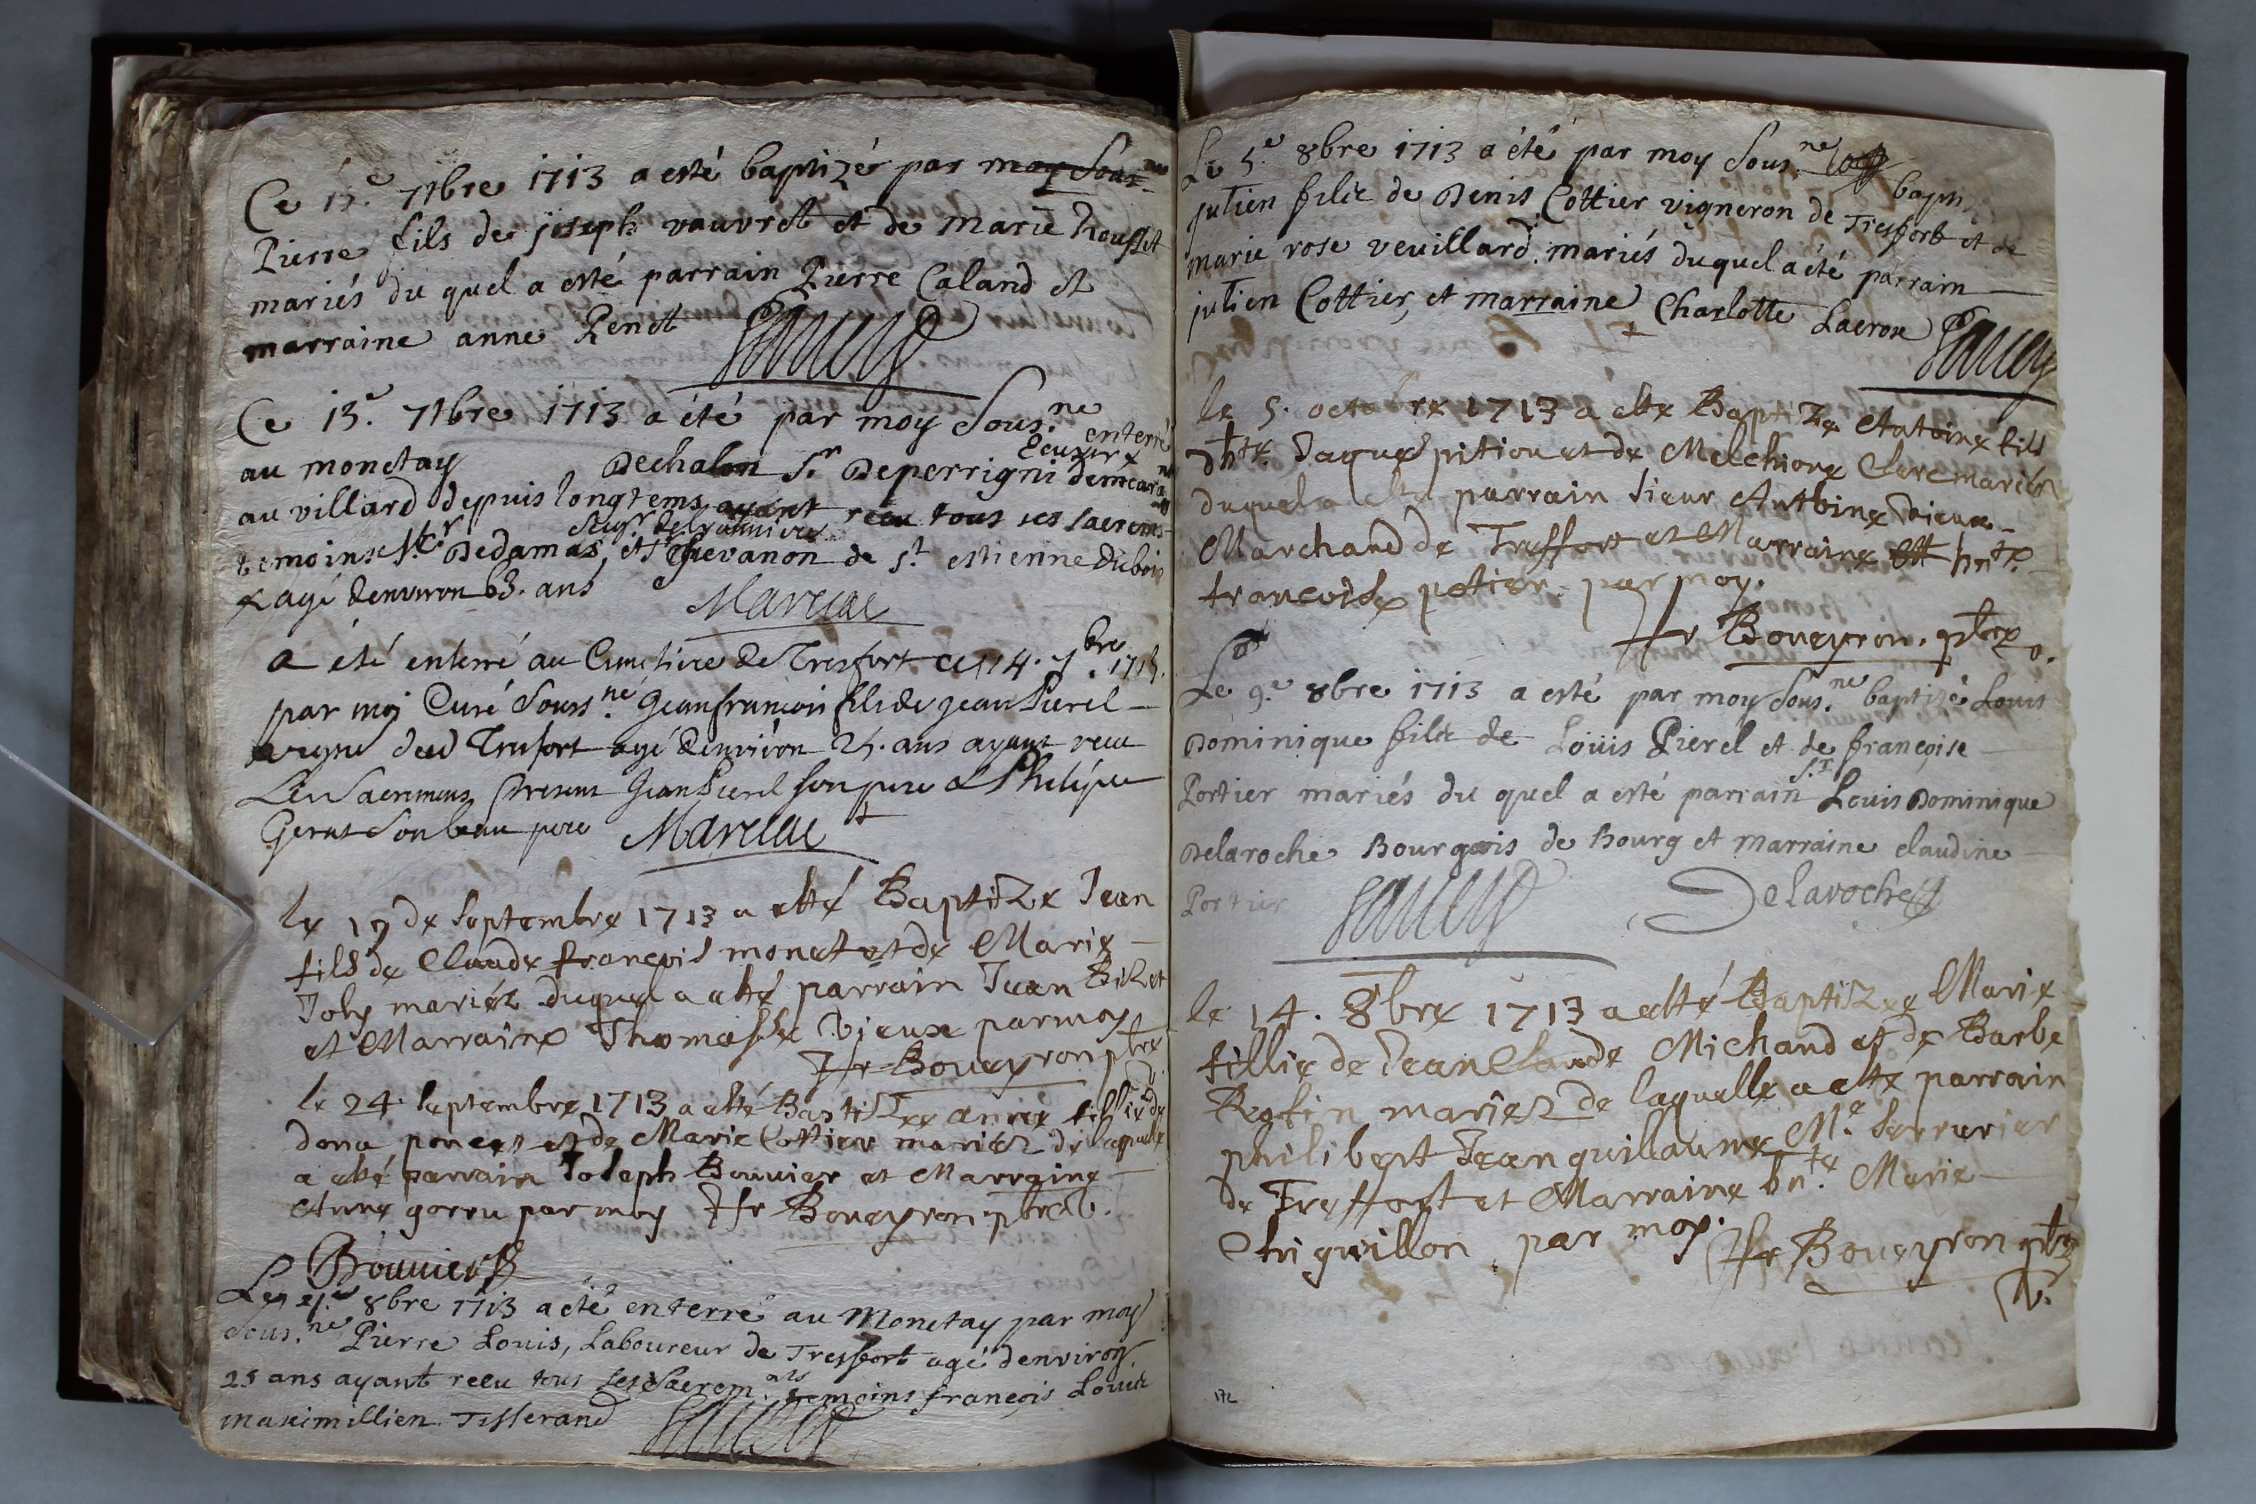 Ce 13.e 7bre 1713 a esté baptizé par moy Sous.né
Pierre fils de joseph vauvret et de marie Rousset
mariés du quel a esté parrain Pierre Caland et
marraine anne Penet
Ce 13.e 7bre 1713 a été par moy Sous.né enterré
au monetay Dechalon Sr Deperrigni Ecuyer demeurant
au villard depuis longtems ayant receu tous ses sacrem.
temoins Dedamas, et Thevanon de St estienne Dubois
agé denviron 63. ans Marelac
a été enterré au Cimetiere de Tresfort ce 14. 7bre 1713.
par moi Curé Souss.né Jeanfrancois fils de jean Pierel
vigne dud Tresfort agé denviron 25. ans ayant receu
Les Sacremens Present Jean Pierel son pere & Philipe
Gerat son beau pere Marelac
le 17 de septembre 1713 a esté Baptize Jean
fils de Claude françois monet et de Marie
Joly mariéz duquel a esté parrain Jean Bizet
et Marraine Thomasse Vieux par moy
Boueyron ptre
le 24. septembre 1713 a esté Baptizee anne fillie de
dona poncet et de Marie Cottier mariéz de laquelle
a esté parrain Joseph Bouvier et Marraine
Anne gorru par moy Boueyron ptre v.
Bouvier
Le 8bre 1713 a été enterré au Monetay par moy
Sous.né Pierre Louis, Laboureur de Tresfort agé denviron
25 ans ayant receu tous ses Sacrem.nts temoins françois Louis
maximillien Tisserand
Le 5.e 8bre 1713 a été par moy Sous.né bapti
julien fils de Denis Cottier vigneron de Tresfort et de
marie rose veuillard mariés duquel a été parrain
julien Cottier, et marraine Charlotte Lacroix
le 5. octobre 1713 a esté Baptize Antoine fils
dhte. Jaque pition et de Melchione Clerc mariés
duquel a esté parrain sieur Anthoine Vieux
Marchand de Treffort et Marraine hnte.
françoise potier par moy.
Boueyron. ptre
Le 9.e 8bre 1713 a esté par moy Sous.né baptizé Louis
Dominique fils de Louis Pierel et de françoise
Portier mariés du quel a esté parrain Sr Louis Dominique
Delaroche Bourgois de Bourg et marraine claudine
Portier Delaroche
le 14. 8bre 1713 a esté Baptizee Marie
fillie de Jean Claude Michaud et de Barbe
mariez de laquelle a esté parrain
philibert Jean guillaume Me. Serrurier
de Treffort et Marraine hnte. Marie
Chiguillon par moy. Boueyron ptre
v.
172